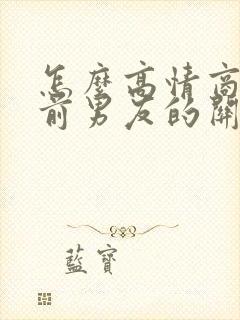 怎麼高情商
前男友的開
藍寶